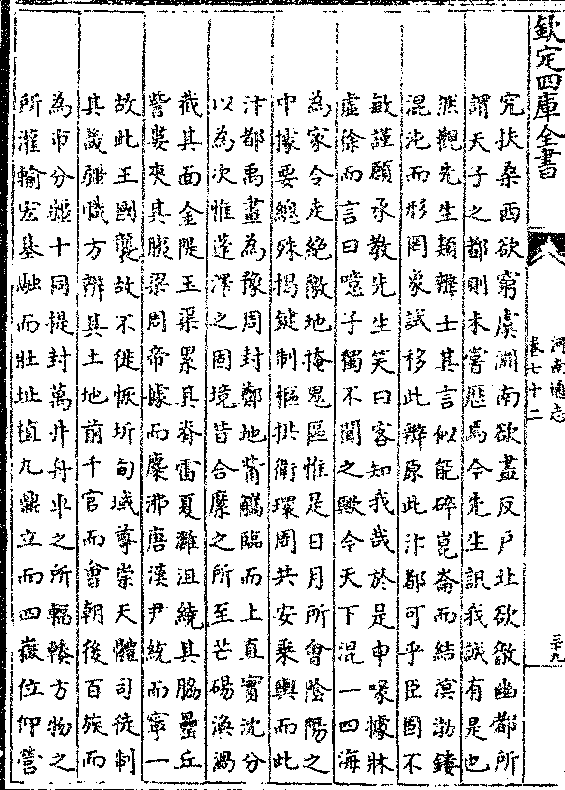 欽定四庫全書
河南通志
卷七十二
三十九
究扶桑西欲窮虞淵南欲盡反戶北欲徹幽都所
謂天子之都則未嘗歷焉今先生訊我誠有是也
然觀先生類辨士其言似能碎崑崙而結溟渤鏤
混沌而形罔象試移此辨原此汴都可乎臣固不
敏謹願承教先生笑曰客知我哉於是申喙據牀
虛徐而言曰噫子獨不聞之歟今天下混一四海
為家令走絕徼地掩鬼區惟是日月所會陰陽之
中據要總殊揭鍵制樞拱衛環周共安乘輿而此
汴都禹畫為豫周封鄭地觜觿臨而上直實沈分
以為次惟蓬澤之固境皆合麋之所至芒碭渙渦
截其面金隄玉渠累其脊雷夏灉沮繞其脇壘丘
訾婁夾其腋梁周帝據而麋沸唐漢尹統而寧一
故此王國襲故不徙恢圻甸域尊崇天體司徒制
其畿疆職方辨其土地前千官而會朝後百族而
為市分疆十同提封萬井舟車之所輻輳方物之
所灌輸宏基融而壯址植九鼎立而四嶽位仰營